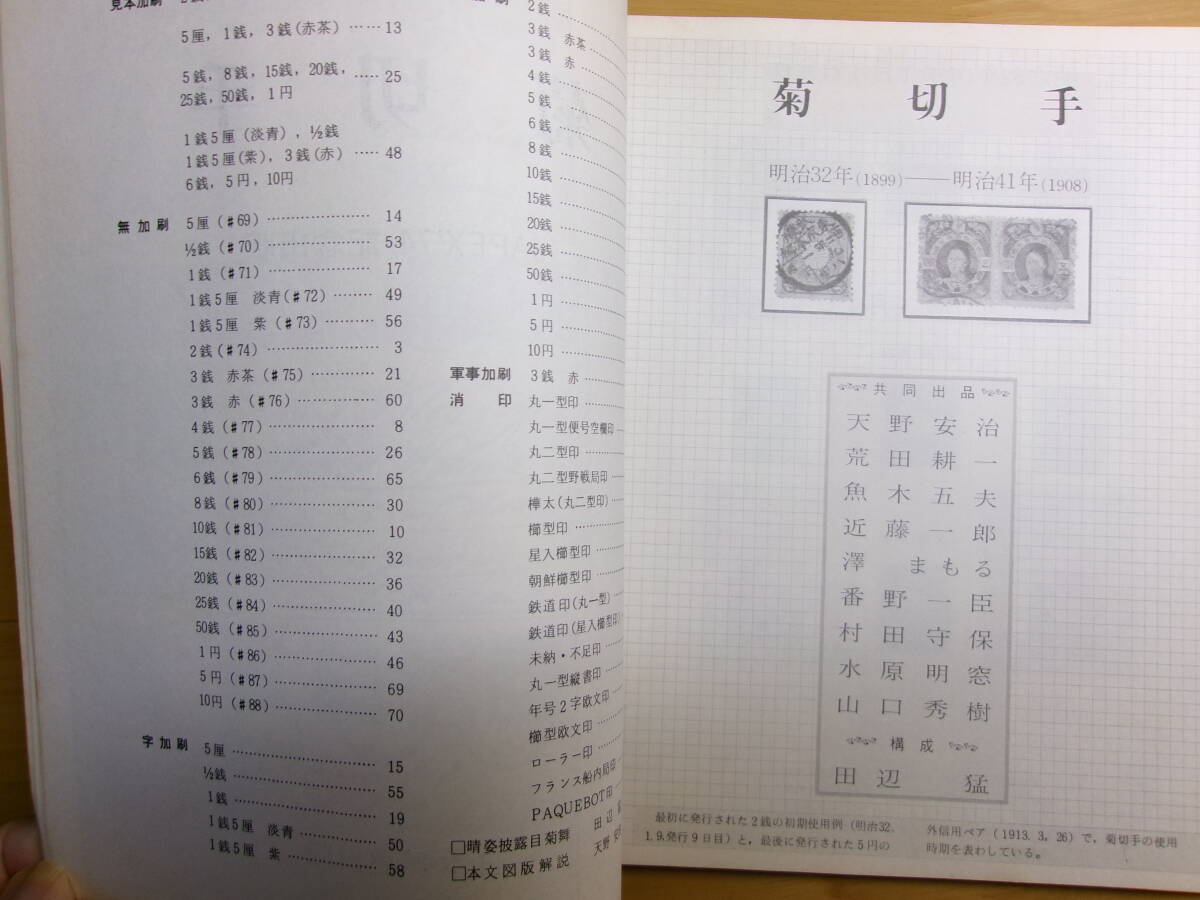 見本加刷
5厘，1銭，3銭(赤茶) ……13
5銭，8銭，15銭，20銭， ……25
25銭，50銭，1円
1銭5厘（淡青），½銭
1銭5厘(紫)，3銭(赤) ……48
6銭，5円，10円
無加刷 5厘（＃69）…………………14
½銭（＃70）…………………53
1銭（＃71）…………………17
1銭5厘 淡青（＃72）………49
1銭5厘 紫（＃73）…………56
2銭（＃74）…………………3
3銭 赤茶（＃75）……………21
3銭 赤（＃76）………………60
4銭（＃77）…………………8
5銭（＃78）…………………26
6銭（＃79）…………………65
8銭（＃80）…………………30
10銭（＃81）…………………10
15銭（＃82）…………………32
20銭（＃83）…………………36
25銭（＃84）…………………40
50銭（＃85）…………………43
1円（＃86）…………………46
5円（＃87）…………………69
10円（＃88）…………………70
字加刷 5厘…………………15
½銭…………………55
1銭…………………19
1銭5厘 淡青…………50
1銭5厘 紫……………58
刷 2銭
3銭 赤茶
3銭 赤
4銭
5銭
6銭
8銭
10銭
15銭
20銭
25銭
50銭
1円
5円
10円
軍事加刷 3銭 赤
消印 丸一型印
丸一型便号空欄印
丸二型印
丸二型野戦局印
樺太(丸二型印)
櫛型印
星入櫛型印
朝鮮櫛型印
鉄道印(丸一型)
鉄道印(星入櫛型印)
未納・不足印
丸一型縦書印
年号2字欧文印
櫛型欧文印
ローラー印
フランス船内局印
PAQUEBOT印
□晴姿披露目菊舞 田辺
□本文図版解説 天野
菊切手
明治32年(1899)——明治41年(1908)
共同出品
天野安治
荒田耕一
魚木五夫
近藤一郎
澤まもる
番野一臣
村田守保
水原明窓
山口秀樹
構成
田辺猛
最初に発行された2銭の初期使用例（明治32.
1.9.発行9日目）と，最後に発行された5円の
外信用ペア（1913.3.26）で，菊切手の使用
時期を表わしている。